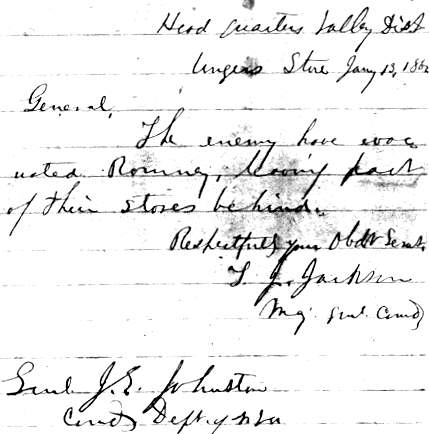 Head quarters Valley Dist
Ungers Store Jany 13, 1862
General,
The enemy have evac
uated Romney, leaving part
of their stores behind.
Respectfully your Obdt Servt.
T. J. Jackson
Maj. Genl. Comdg
Genl. J. E. Johnston
Comdg Dept. of N. Va